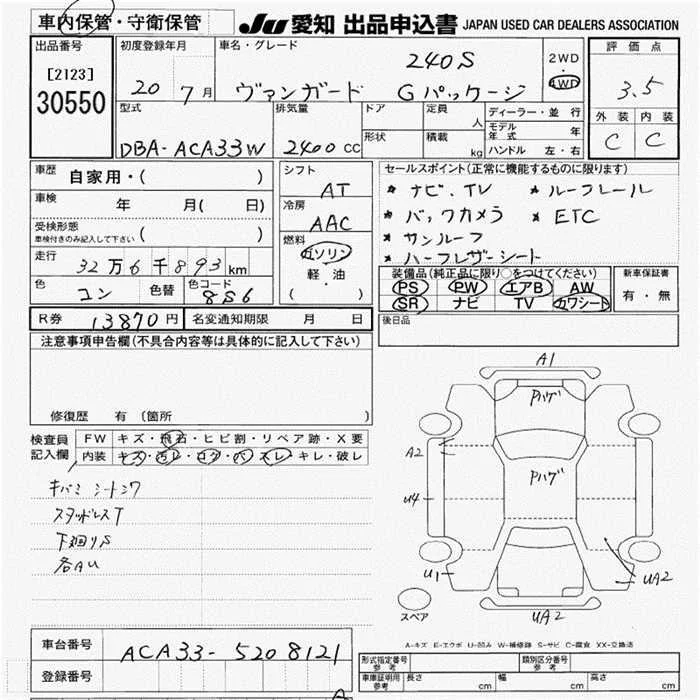 車内保管・守衛保管
JU 愛知 出品申込書 JAPAN USED CAR DEALERS ASSOCIATION
出品番号 初度登録年月 車名・グレード 240S 2WD 評価点
[2123] 20 7月 ヴァンガード Gパッケージ 4WD 3.5
30550 型式 排気量 ドア 定員 人 ディーラー・並行 外装 内装
DBA-ACA33W 2400 CC 形状 積載 kg モデル年式 年 C C
ハンドル 左・右
車歴 自家用・( ) シフト セールスポイント(正常に機能するものに限ります)
AT * ナビ、TV * ルーフレール
車検 年 月( 日) 冷房 * バックカメラ * ETC
受検形態 ( ) AAC * サンルーフ
車検付きのみ記入して下さい 燃料 * ハーフレザーシート
走行 32万6千893km ガソリン 装備品(純正品に限り○をつけてください) 新車保証書
軽・油 PS PW エアB AW 有・無
色 コン 色替 色コード 8S6 ( ) SR ナビ TV カワシート
R券 13870円 名変通知期限 月 日 後日品
注意事項申告欄(不具合内容等は具体的に記入して下さい)
修復歴 有 (箇所 )
検査員 FW キズ・飛石・ヒビ割・リペア跡・X要
記入欄 内装 キズ・汚レ・コゲ・穴・スレ・キレ・破レ
キバミ シートシワ
スタッドレスT
下廻りS
各AU
A1
Pハゲ
A2
Pハゲ
U4
U1
UA2
スペア
UA2
A-キズ E-エクボ U-凹み W-補修跡 S-サビ C-腐食 XX-交換済
車台番号 ACA33-5208121
登録番号
形式指定番号 参考 類別区分番号 参考
車庫証明用 参考 長さ cm 幅 cm 高さ cm